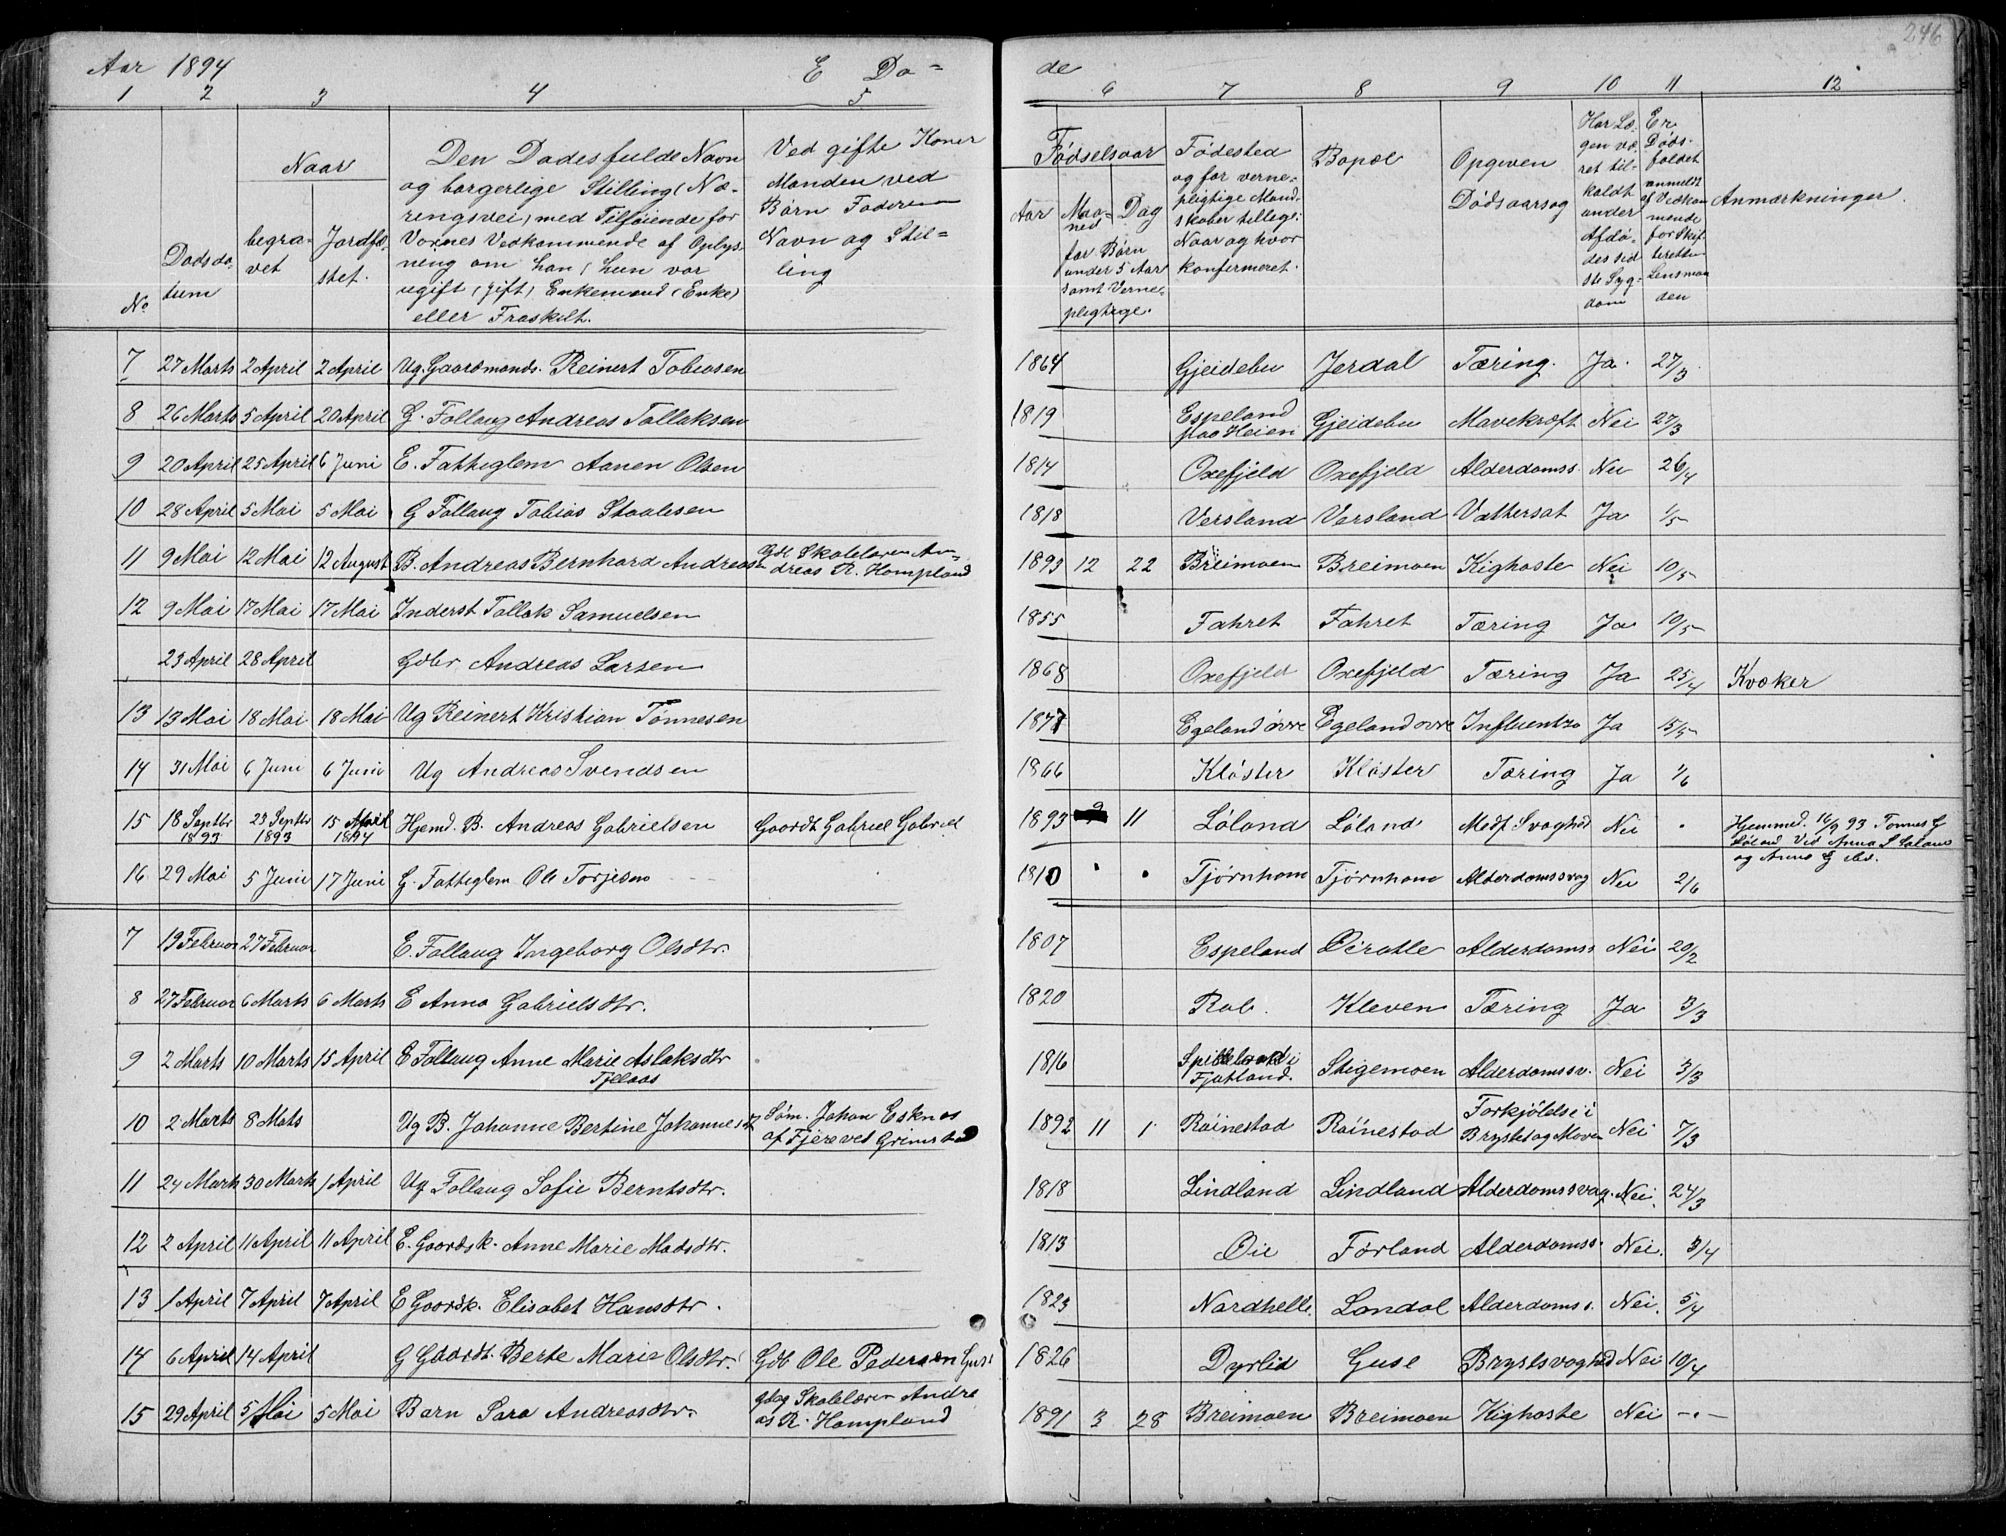 246
Aar 1894 E Dø- de
1 2 3 4 5 6 7 8 9 10 11 12
No
Dødsda-
tum
Naar
begra-
vet
Jordfæ-
stet.
Den Dødes fulde Navn
og borgerlige Stilling (Næ-
ringsvei) med Tilføiende for
Voxnes Vedkommende af Oplys-
ning om han (hun var
ugift (gift) Enkemand (Enke)
eller Fraskilt.
Ved gifte Koner
Manden, ved
Børn Faderens
Navn og Stil-
ling
Fødselsaar
Aar
Maa-
ned
Dag
for Børn
under 5 Aar
samt Verne-
pligtige.
Fødested
og for verne-
pligtige Mand-
skaber tillige:
Naar og hvor
konfirmeret.
Bopæl
Opgiven
Dødsaarsag
Har Læ-
gen væ-
ret til-
kaldt
under
Afdø-
des sid
ste Syg-
dom
Er
Døds-
faldet
anmeldt
af Vedkom
mende
for Skif
teretten
Lensman
den
Anmærkninger.
7 27 Marts 2 April 2 April Ug. Gaardmands. Reinert Tobiasen 1864 Gjeidebu Jerdal Tæring. Ja. 27/3
8 26 Marts 5 April 20 April G. Follaug Andreas Tollaksen 1819 Espeland paa Heien Gjeidebu Mavekræft Nei 27/3
9 20 April 25 April 6 Juni E. Fattiglem Aanen Olsen 1814 Oxefjeld Oxefjeld Alderdomss. Nei 26/4
10 28 April 5 Mai 5 Mai G Follaug Tobias Staalesen 1818 Versland Versland Vattersot Ja 1/5
11 9 Mai 12 Mai 12 August B. Andreas Bernhard Andreasen Gdb Skolelæren An-
dreas R. Hompland 1893 12 22 Breimoen Breimoen Kighoste Nei 10/5
12 9 Mai 17 Mai 17 Mai Inderst Tollak Samuelsen 1855 Fahret Fahret Tæring Ja 10/5
23 April 28 April Gdbr Andreas Larsen 1868 Oxefjeld Oxefjeld Tæring Ja 25/4 Kvæker
13 13 Mai 18 Mai 18 Mai Ug Reinert Kristian Tønnesen 1847 Egeland övre Egeland ovre Influentza Ja 15/5
14 31 Mai 6 Juni 6 Juni Ug Andreas Svendsen 1866 Kløster Kløster Tæring Ja 1/6
15 18 Septbr 1893 23 Septbr 1893 15 April 1894 Hjemd. B. Andreas Gabrielsen Gaardb Gabriel Gabriel 1893 9 11 Løland Løland Medf. Svaghed Nei Hjemmed. 16/9 93 Tønnes G
Løland Ved Anna S Løland
og Anna G ibd.
16 29 Mai 5 Juni 17 Juni G. Fattiglem Ole Torjesen 1810 Tjørnhom Tjørnhom Alderdomssvag Nei 2/6
7 19 Februar 27 Februar E. Follaug Ingeborg Olsdtr. 1807 Espeland Alderdomss Nei 20/2
8 27 Februar 6 Marts 6 Marts E Anna Gabrielsdtr. 1820 Rob. Kleven Tæring Ja 3/3
9 2 Marts 10 Marts 15 April E Follaug Anne Marie Aslaksdtr
Tjelaas 1816 Spikkeland i
Fjotland. Stigemoen Alderdomssv. Nei 3/3
10 2 Marts 8 Mats Ug B. Johanne Bertine Johannesd Søm. Johan Esknes
af Fjereves Grimstad 1892 11 1 Røinestad Røinestad Forkjölelse i
Bryst og Maven Nei 7/3
11 24 Marts 30 Marts 1 April Ug Follaug Sofie Berntsdtr. 1818 Lindland Lindland Alderdomssvag. Nei. 24/3
12 2 April 11 April 11 April E. Gaardsk. Anne Marie Madsdtr. 1813 Øie Førland Alderdomss. Nei. 3/4
13 1 April 7 April 7 April E Gaardk. Elisabet Hansdtr. 1823 Nardhelle. Londal Alderdomss. Nei. 5/4
14 6 April 14 April G Gaardk. Berte Marie Olsdtr. Gdb Ole Pedersen Guse 1826 Dyrlid Guse Brystsvaghed Nei 10/4
15 29 April 5 Mai 5 Mai Barn Sara Andreasdtr. Gbog Skolelæren Andre
as R. Hompland 1891 3 28 Breimoen Breimoen Kighoste Nei -.-